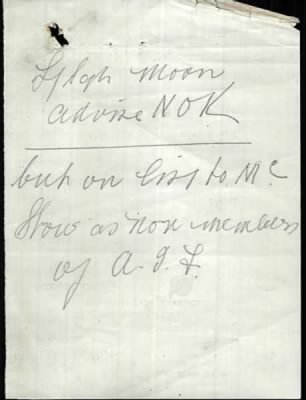 Moon
advise NOK
but on list to Mc
Show as non members
of A.I.F.